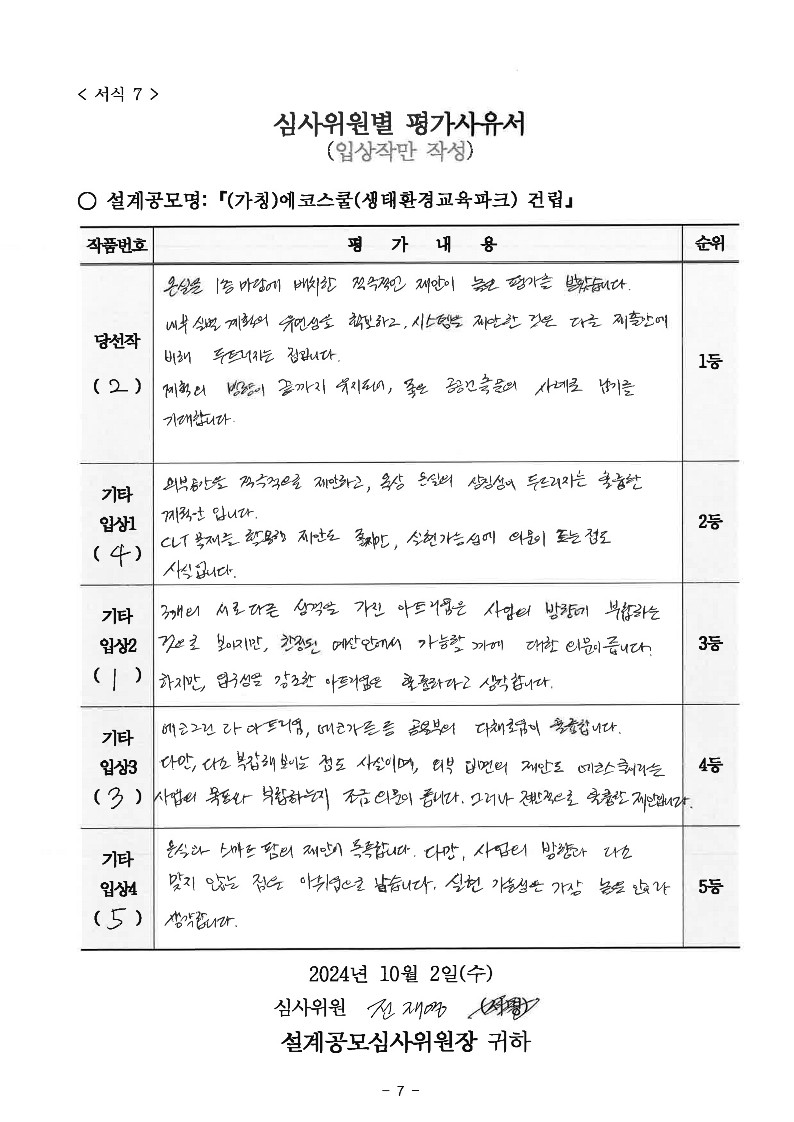 < 서식 7 >
심사위원별 평가사유서
(입상작만 작성)
○ 설계공모명: 『(가칭)에코스쿨(생태환경교육파크) 건립』
작품번호 평 가 내 용 순위
당선작
( 2 )
온실을 1층 마당에 배치한 적극적인 제안이 높은 평가를 받았습니다.
내부 실별 계획의 유연성을 확보하고, 시스템을 제안한 것은 다른 제출안에
비해 두드러지는 점입니다.
계획의 방향이 끝까지 유지되어, 좋은 공공건축물의 사례로 남기를
기대합니다.
1등
기타
입상1
( 4 )
외부공간을 적극적으로 제안하고, 옥상 온실의 상징성이 두드러지는 훌륭한
계획안 입니다.
CLT 목재를 활용한 제안도 좋지만, 실현가능성에 의문이 드는 점도
사실입니다.
2등
기타
입상2
( 1 )
3개의 서로다른 성격을 가진 아트리움은 사업의 방향에 부합하는
것으로 보이지만, 한정된 예산안에서 가능할 지에 대한 의문이 듭니다.
하지만, 입구성을 강조한 아트리움은 훌륭하다고 생각합니다.
3등
기타
입상3
( 3 )
에코그린 라 아트리움, 에코가든 등 공용부의 다채로움이 훌륭합니다.
다만, 다소 복잡해 보이는 점도 사실이며, 외부 입면의 제안도 에코스쿨이라는
사업의 목표와 부합하는지 조금 의문이 듭니다. 그러나 전반적으로 훌륭한 제안입니다.
4등
기타
입상4
( 5 )
온실과 스마트 팜의 제안이 독특합니다. 다만, 사업의 방향과 다소
맞지 않는 점은 아쉬움으로 남습니다. 실현 가능성은 가장 높은 안이라
생각합니다.
5등
2024년 10월 2일(수)
심사위원 전재영
설계공모심사위원장 귀하
- 7 -